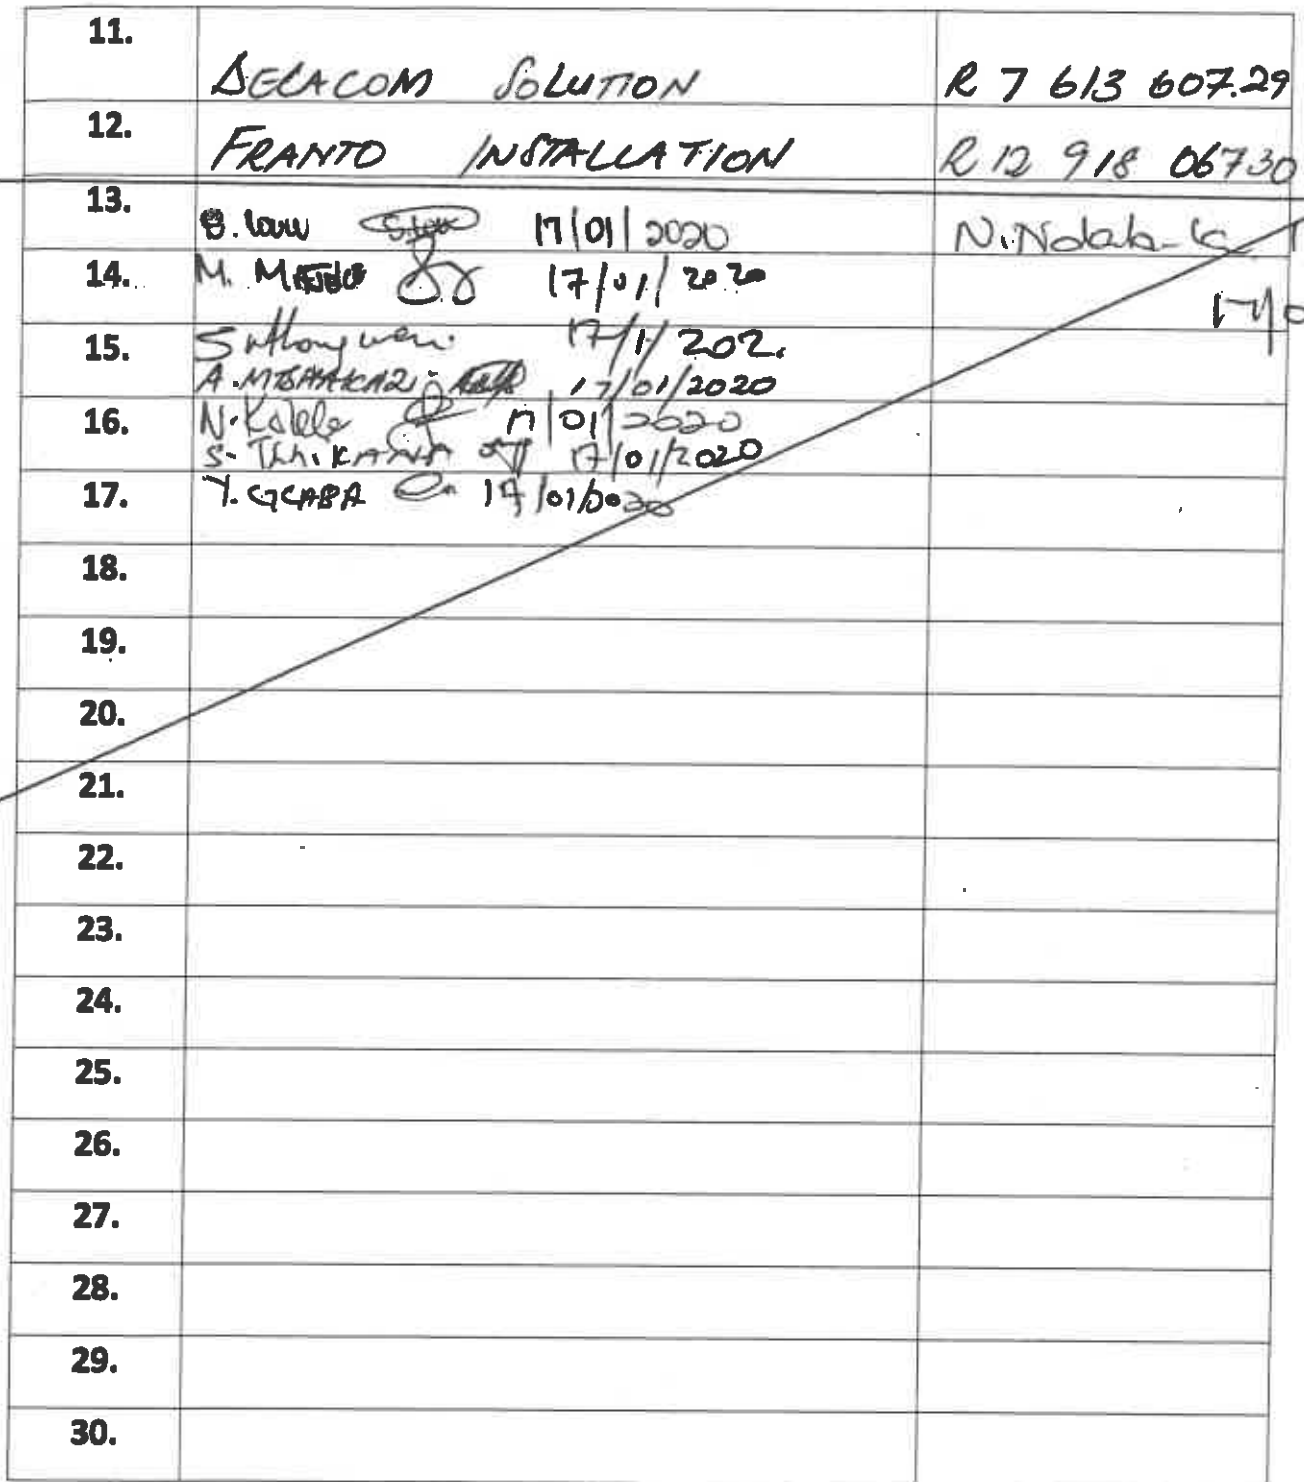 11.
DELACOM SOLUTION R 7 613 607.29
12.
FRANTO INSTALLATION R 12 918 067 30
13.
S. Louw 17/01/2020 N. Ndaba-
14. M. 17/01/2020
17/0
15. 17/1/202.
A. 17/01/2020
16. N. 17/01/2020
S. 17/01/2020
17. Y. GCABA 17/01/2020
18.
19.
20.
21.
22.
23.
24.
25.
26.
27.
28.
29.
30.